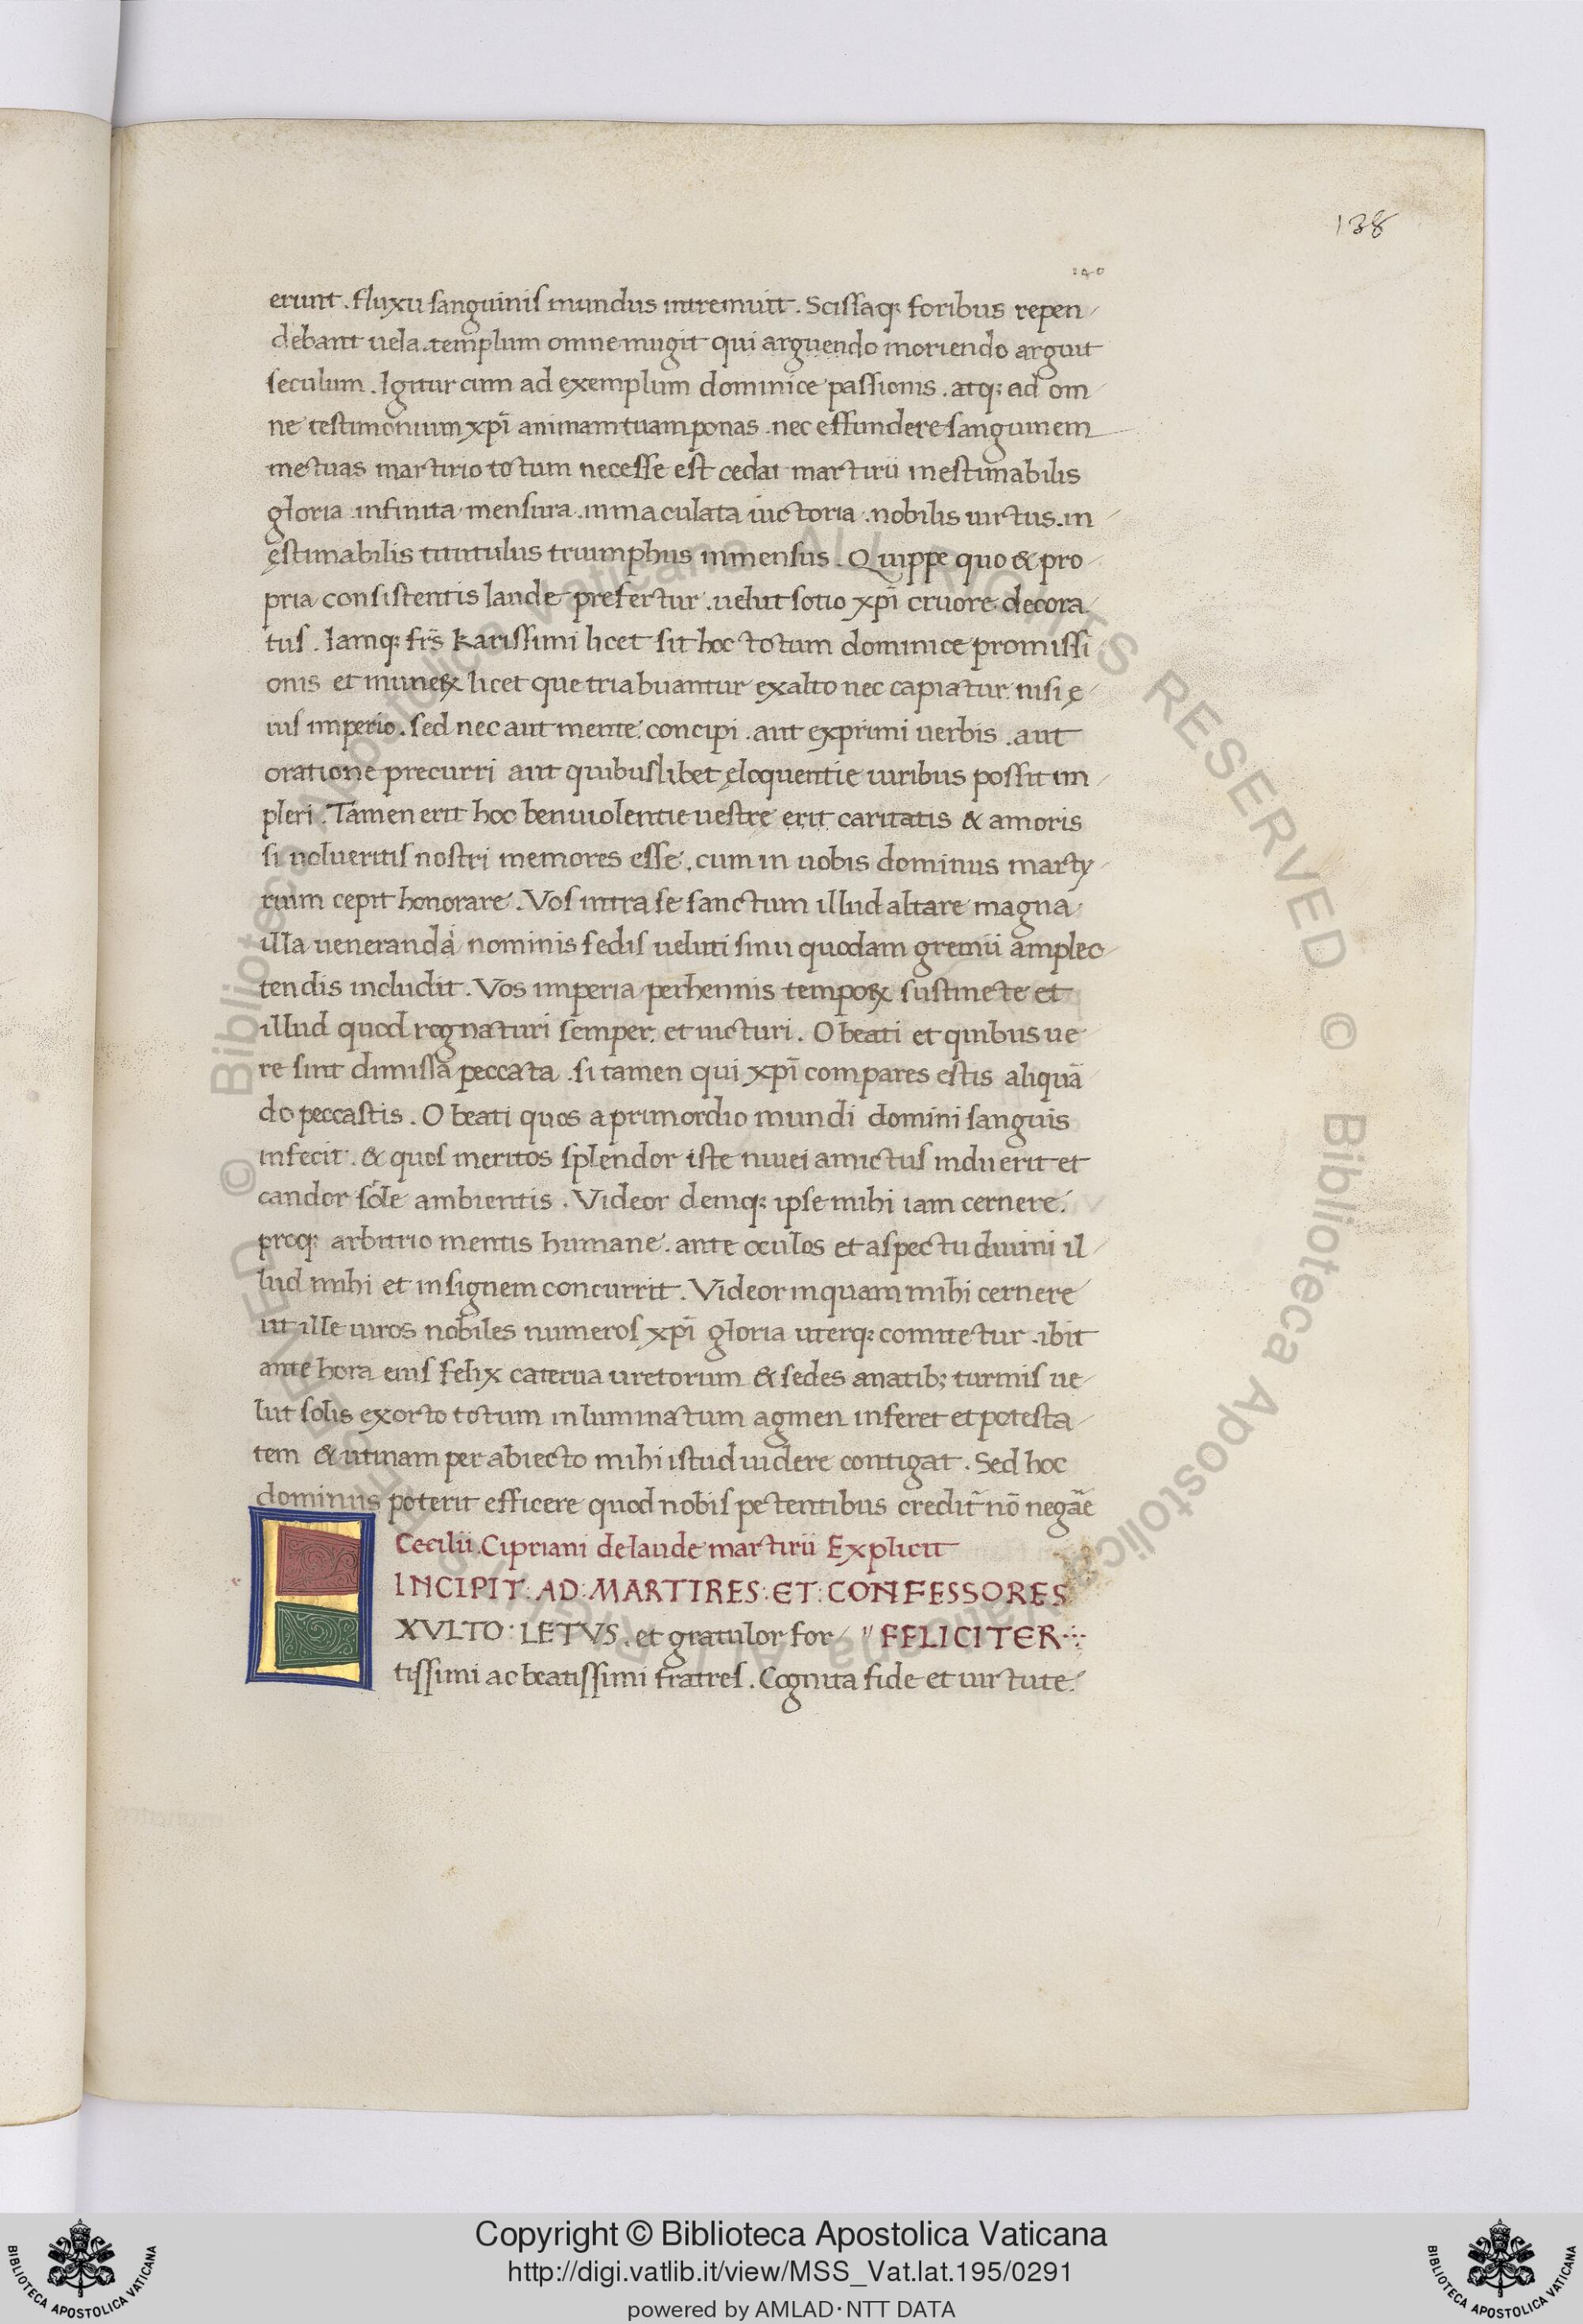 138
140
erunt . fluxu sanguinis mundus intremuit . Scissaq; foribus repen
debant uela . templum omne mugit qui arguendo moriendo arguit
seculum . Igitur cum ad exemplum dominice passionis . atq; ad om
ne testimonium xp̄i animam tuam ponas . nec effundere sanguinem
metuas martirio totum necesse est cedat martirii inestimabilis
gloria . infinita mensura . inmaculata uictoria . nobilis uirtus . in
ęstimabilis titutulus triumphus inmensus . Quippe quo & pro
pria consistentis laude prefertur . uelut sotio xp̄i cruore decora
tus . Iamq; fr̄s karissimi licet sit hoc totum dominice promissi
onis et muneꝝ licet que triabuantur ex alto nec capiatur nisi ę
ius imperio . sed nec aut mente concipi . aut exprimi uerbis . aut
oratione precurri aut quibuslibet ęloquentie uiribus possit im
pleri . Tamen erit hoc beniuolentie uestre erit caritatis & amoris
si uolueritis nostri memores esse . cum in uobis dominus marty
rium cepit honorare . Vos intra se sanctum illud altare magna
illa ueneranda nominis sedis ueluti sinu quodam gremii amplec
tendis includit . Vos imperia perhennis tempoꝝ sustinete et
illud quod regnaturi semper et uicturi . O beati et quibus ue
re sint dimissa peccata . si tamen qui xp̄i compares estis aliquā
do peccastis . O beati quos a primordio mundi domini sanguis
infecit . & quos meritos splendor iste niuei amictus induerit et
candor sole ambientis . Videor deniq; ipse mihi iam cernere .
proq; arbitrio mentis humane . ante oculos et aspectu diuini il
lud mihi et insignem concurrit . Videor inquam mihi cernere
ut ille uiros nobiles numeros xp̄i gloria uterq; comitetur . ibit
ante hora eius felix caterua uretorum & sedes anatib; turmis ue
lut solis exorto totum inluminatum agmen inferet et potesta
tem & utinam per abiecto mihi istud uidere contigat . Sed hoc
dominus poterit efficere quod nobis petentibus credit̄ nō negāe
Cecilii Cipriani de laude martirii Explicit
INCIPIT : AD : MARTIRES : ET : CONFESSORES
EXVLTO · LETVS . et gratulor for " FELICITER
tissimi ac beatissimi fratres . Cognita fide et uirtute
© Biblioteca Apostolica Vaticana ALL RIGHTS RESERVED
Copyright © Biblioteca Apostolica Vaticana
http://digi.vatlib.it/view/MSS_Vat.lat.195/0291
powered by AMLAD·NTT DATA
BIBLIOTECA APOSTOLICA VATICANA
BIBLIOTECA APOSTOLICA VATICANA